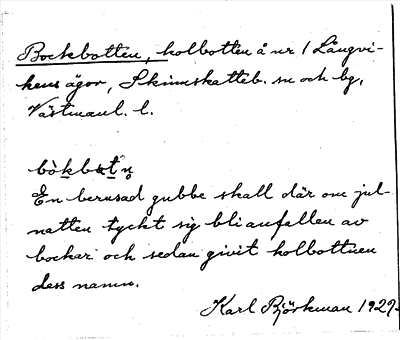 Bockbotten, kolbotten å nr 1 Långvi-
kens ägor, Skinnskatteb. sn och bg,
Västmanl. l.
bòkbɷt̀ṇ
En berusad gubbe skall där om jul-
natten tyckt sig bli anfallen av
bockar och sedan givit kolbottnen
dess namn.
Karl Björkman 1929.